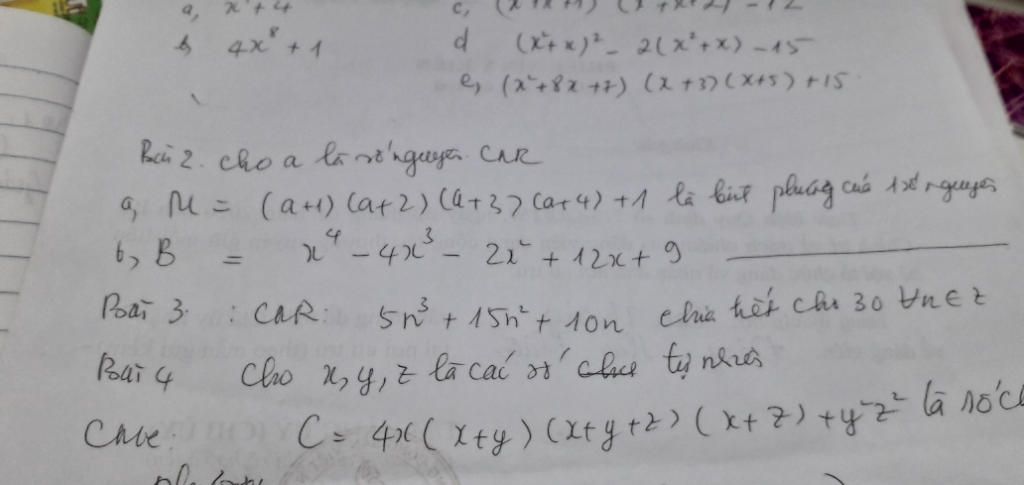 a, x⁴ + 4 c, (x²+x+1) (x²+x+2) - 12
b 4x⁸ + 1 d (x²+x)² - 2(x²+x) - 15
e, (x²+8x+7) (x+3)(x+5) + 15
Bài 2. Cho a là số nguyên. CMR
a, M = (a+1) (a+2) (a+3) (a+4) + 1 là bình phương của 1 số nguyên
b, B = x⁴ - 4x³ - 2x² + 12x + 9
Bài 3 : CMR: 5n³ + 15n² + 10n chia hết cho 30 ∀n ∈ Z
Bài 4 Cho x, y, z là các số tự nhiên
CMR: C = 4x(x+y) (x+y+z) (x+z) + y²z² là số ch
phương